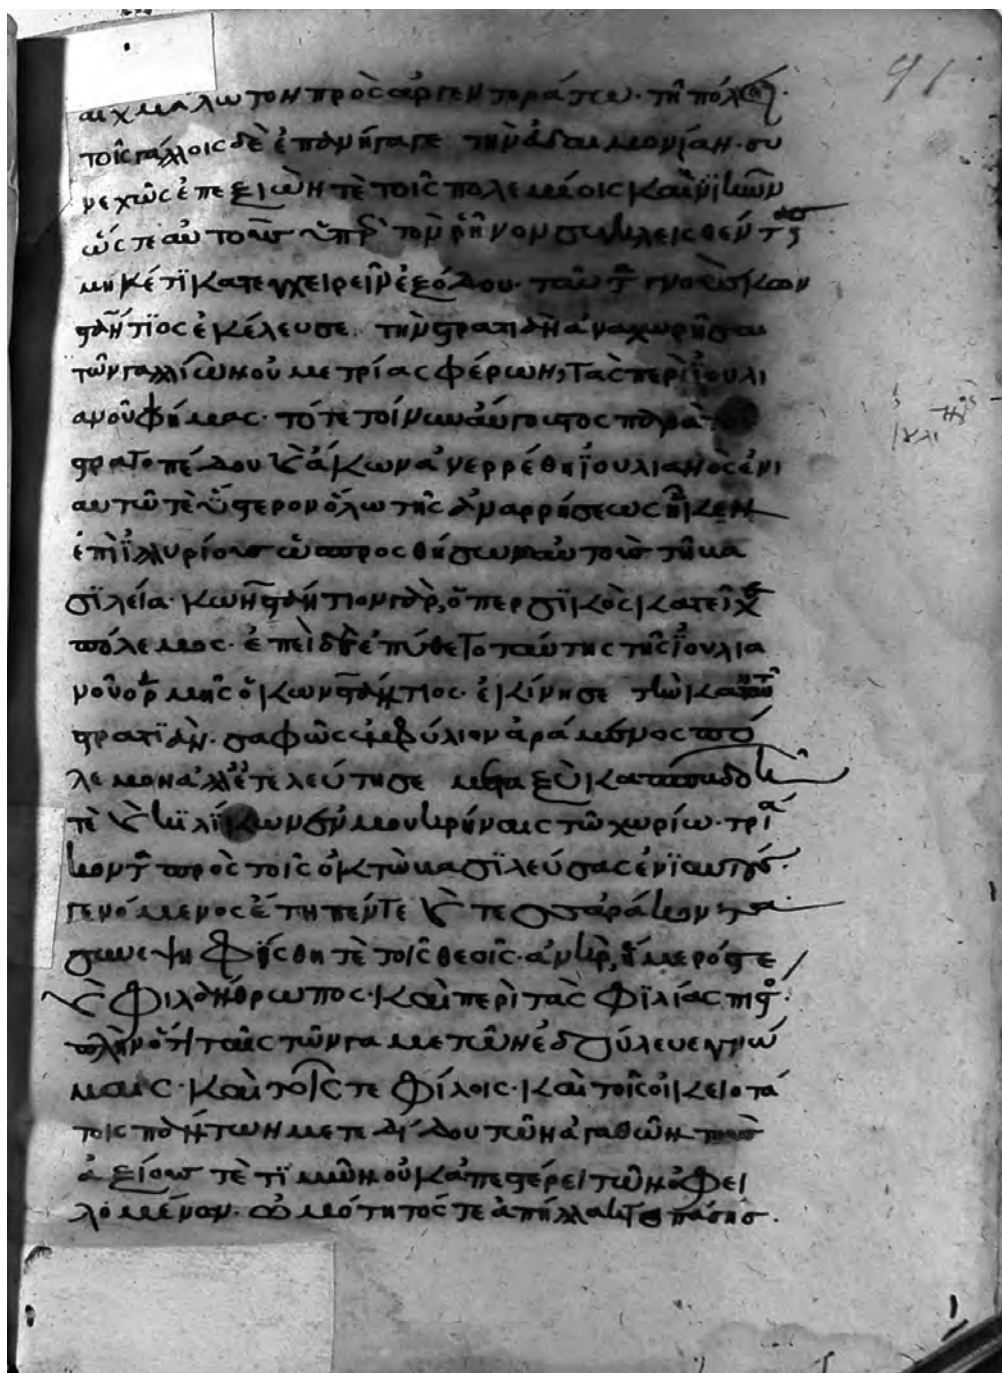 αἰχμάλωτον πρὸς ἀργεντοράτω τῇ πόλει.
τοῖς γάλλοις δὲ ἐπανήγαγε τὴν εὐδαιμονίαν. συ
νεχῶς ἐπεξιὼν τὲ τοῖς πολεμίοις καὶ νικῶν
ὥς τε αὐτοὺς ὑπὲρ τὸν ῥῆνον συγκλεισθέντας
μηκέτι κατεγχειρεῖν ἐξόδου. ταῦτα γνοὺς κων
στάντιος ἐκέλευσε τὴν στρατιὰν ἀναχωρῆσαι
τῶν γαλλιῶν οὐ μετρίας φέρων, τὰς περὶ ἰουλι
ανοῦ φήμας. τότε τοίνυν αὔγουστος παρὰ τοῦ
στρατοπέδου καὶ ἄκων ἀνερρέθη ἰουλιανὸς ἐνι
αυτῶ τὲ ὕστερον ὅλω τῆς ἀναρρήσεως ἧκεν
ἐπὶ ἰλλυρίους ὡς προσθήσων αὐτοὺς τῆ βα
σιλεία. κωνστάντιον γὰρ, ὁ περσικὸς κατεῖχε
πόλεμος. ἐπεὶ δὲ ἐπύθετο ταύτης τῆς ἰουλια
νοῦ ὁρμῆς ὁ κωνστάντιος. ἐκίνησε τὴν κατ' αὐτοῦ
στρατιὰν. σαφῶς ἐμφύλιον ἀράμενος πό
λεμον ἀλλ' ἐτελεύτησε μεταξὺ καππαδοκῶν
τὲ καὶ κιλίκων ἐν μουκρήναις τῶ χωρίω. τριά
κοντα πρὸς τοῖς ὀκτὼ βασιλεύσας ἐνιαυτούς.
γενόμενος ἔτη πέντε καὶ τεσσαράκοντα.
συνεψηφίσθη τὲ τοῖς θεοῖς. ἀνὴρ, ἥμερός τε
καὶ φιλάνθρωπος. καὶ περὶ τὰς φιλίας πιστός.
πλὴν ὅτι ταῖς τῶν γαμετῶν ἐδούλευε γνώ
μαις. καὶ τοῖς τε φίλοις. καὶ τοῖς οἰκειοτά
τοις πάντων μετεδίδου τῶν ἀγαθῶν τοὺς
ἀξίους τὲ τιμῶν οὐκ ἀπεστέρει τῶν ὀφει
λομένων. ὠμότητός τε ἀπήλλακτο πάσης.